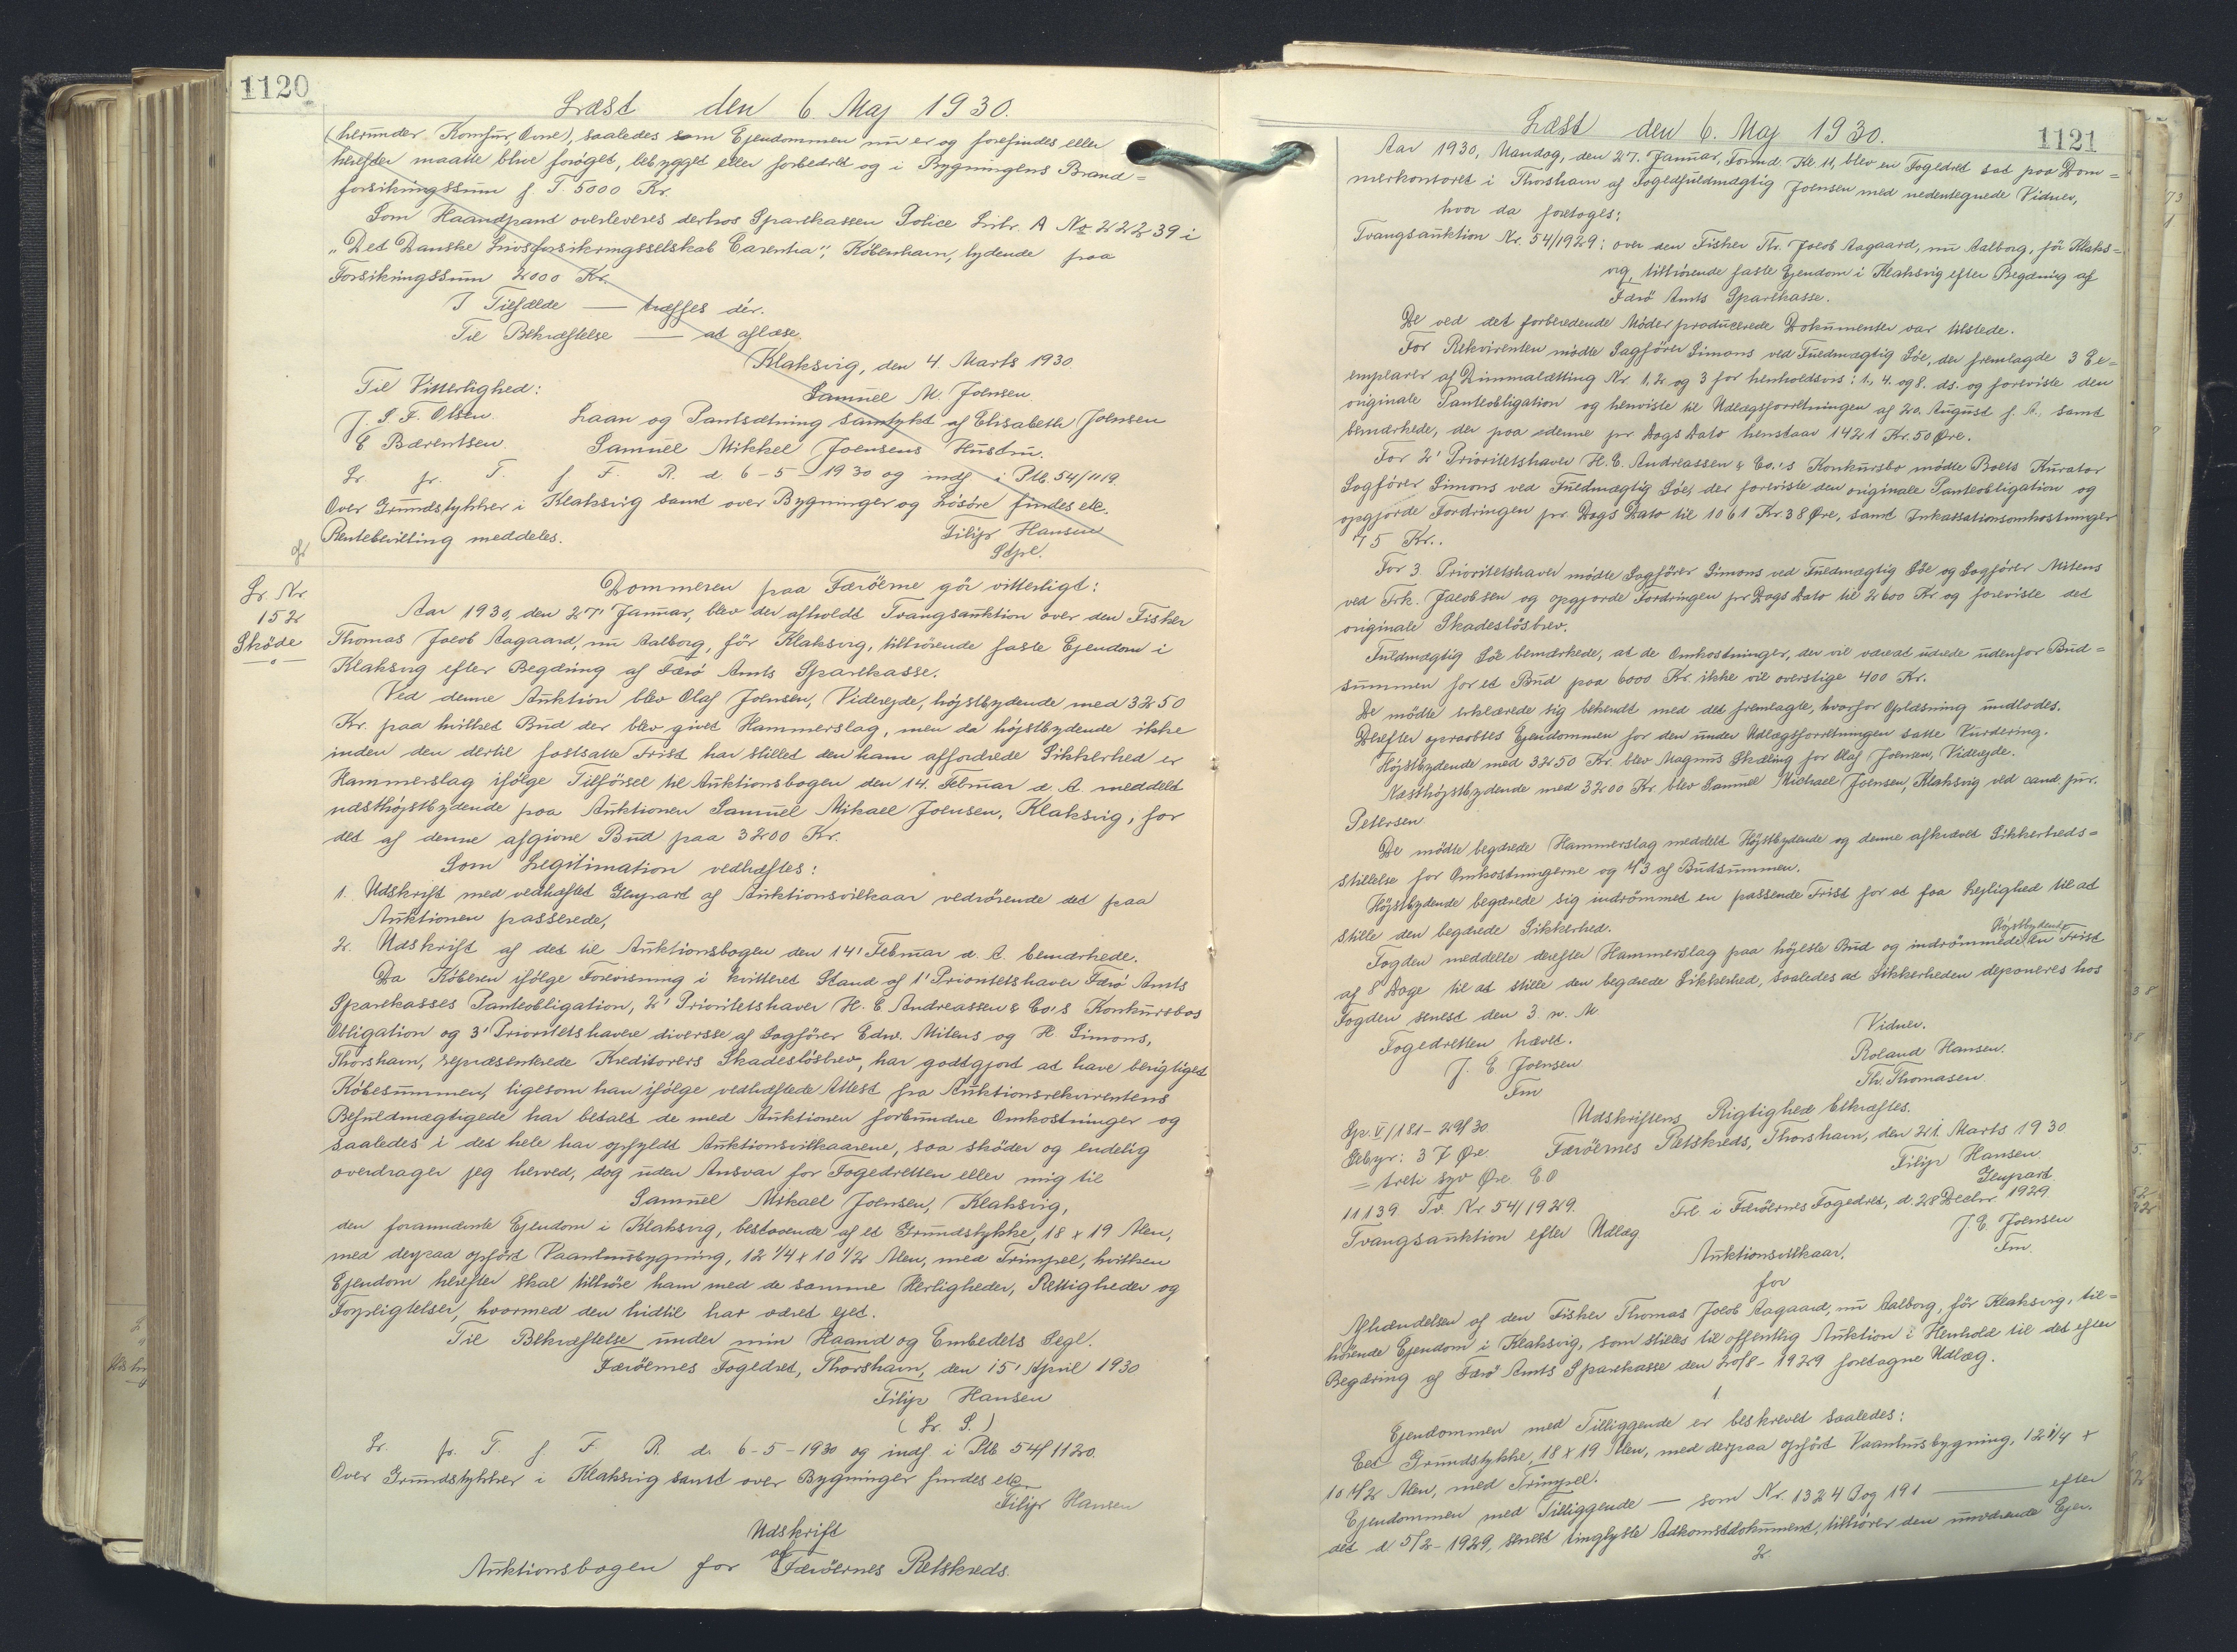 1120
Læst den 6. Maj 1930.
(herunder Komfur, Ovne), saaledes som Ejendommen nu er og forefindes eller
herefter maatte blive forøget, bebygget eller forbedret og i Bygningens Brand=
forsikringssum f. T. 5000 Kr.
Som Haandpant overleveres derhos Sparekassen Police Litr. A No 222239 i
"Det Danske Livsforsikringsselskab Carentia", København, lydende paa
Forsikringssum 2000 Kr.
I Tilfælde — træffes dér.
Til Bekræftelse — at aflæse
Klaksvig, den 4. Marts 1930
Til Vitterlighed: Samuel M. Joensen.
J. S. F. Olsen Laan og Pantsætning samtykt af Elisabeth Joensen
E Bærentsen. Samuel Mikkel Joensens Hustru.
L. fr. T. f F. R. d. 6-5-1930 og indf i Ptb. 54/1119.
Over Grundstykker i Klaksvig samt over Bygninger og Løsøre findes etc.
Rentebevilling meddeles. Filip Hansen
Stpl.
L. Nr.
152
Skøde
Dommeren paa Færøerne gør vitterligt:
Aar 1930, den 27' Januar, blev der afholdt Tvangsauktion over den Fisker
Thomas Jacob Aagaard, nu Aalborg, før Klaksvig, tilhørende faste Ejendom i
Klaksvig efter Begæring af Færø Amts Sparekasse.
Ved denne Auktion blev Olaf Joensen, Viderejde, højstbydende med 3250
Kr. paa hvilket Bud der blev givet Hammerslag, men da højstbydende ikke
inden den dertil fastsatte Frist har stillet den ham affordrede Sikkerhed er
Hammerslag ifølge Tilførsel til Auktionsbogen den 14. Februar d. A. meddelt
næsthøjstbydende paa Auktionen Samuel Mikael Joensen, Klaksvig, for
det af denne afgivne Bud paa 3200 Kr.
Som Legitimation vedhæftes:
1. Udskrift med vedhæftet Genpart af Auktionsvilkaar vedrørende det paa
Auktionen passerede,
2. Udskrift af det til Auktionsbogen den 14' Februar d. A. bemærkede.
Da Køberen ifølge Forevisning i kvitteret Stand af 1' Prioritetshaver Færø Amts
Sparekasses Panteobligation, 2' Prioritetshaver H. E. Andreassen & Co's Konkursbos
Obligation og 3' Prioritetshavere diverse af Sagfører Edw. Mitens og H Simons,
Thorshavn, repræsenterede Kreditorers Skadesløsbrev, har godtgjort at have berigtiget
Købesummen, ligesom han ifølge vedhæftede Attest fra Auktionsrekvirentens
Befuldmægtigede har betalt de med Auktionen forbundne Omkostninger og
saaledes i det hele har opfyldt Auktionsvilkaarene, saa skøder og endelig
overdrager jeg herved, dog uden Ansvar for Fogedretten eller mig til
Samuel Mikael Joensen, Klaksvig,
den forannævnte Ejendom i Klaksvig, bestaaende af et Grundstykke, 18 x 19 Alen,
med derpaa opført Vaaanhusbygning, 12 1/4 x 10 1/2 Alen, med Trimpel, hvilken
Ejendom herefter skal tilhøre ham med de samme Herligheder, Rettigheder og
Forpligtelser, hvormed den hidtil har været ejet.
Til Bekræftelse under min Haand og Embedets Segl.
Færöernes Fogedret, Thorshavn, den 15' April 1930
Filip Hansen
(L. S.)
L. fr. T. f F. R. d. 6-5-1930 og indf i Ptb 54/1120.
Over Grundstykker i Klaksvig samt over Bygninger findes etc
Filip Hansen
Udskrift
af
Auktionsbogen for Færöernes Retskreds.
Læst den 6. Maj 1930.
1121
Aar 1930, Mandag, den 27. Januar, Formd. Kl. 11, blev en Fogedret sat paa Dom=
merkontoret i Thorshavn af Fogedfuldmægtig Joensen med nedentegnede Vidner,
hvor da foretoges:
Tvangsauktion Nr. 54/1929: over den Fisker Th. Jacob Aagaard, nu Aalborg, før Klaks=
vig, tilhørende faste Ejendom i Klaksvig efter Begæring af
Færø Amts Sparekasse.
De ved det forberedende Møder producerede Dokumenter var tilstede.
For Rekvirenten mødte Sagfører Simons ved Fuldmægtig Søe, der fremlagde 3 Ex=
emplarer af Dimmalætting Nr. 1, 2 og 3 for henholdsvis: 1., 4. og 8. ds. og foreviste den
originale Panteobligation og henviste til Udlægsforretningen af 20. August f. A., samt
bemærkede, der paa denne pr Dags Dato henstaar 1421 Kr. 50 Øre.
For 2' Prioritetshaver H. E. Andreassen & Co.'s Konkursbo mødte Boets Kurator
Sagfører Simons ved Fuldmægtig Søe, der foreviste den originale Panteobligation og
opgjorde Fordringen pr. Dags Dato til 1061 Kr. 38 Øre, samt Inkassationsomkostninger
75 Kr..
For 3. Prioritetshaver mødte Sagfører Simons ved Fuldmægtig Søe og Sagfører Mitens
ved Frk. Jacobsen og opgjorde Fordringen pr Dags Dato til 2600 Kr og foreviste det
originale Skadesløsbrev.
Fuldmægtig Søe bemærkede, at de Omkostninger, der vil være at udrede udenfor Bud=
summen for et Bud paa 6000 Kr. ikke vil overstige 400 Kr.
De mødte erklærede sig bekendt med det fremlagte, hvorfor Oplæsning undlodes.
Derefter opraabtes Ejendommen for den under Udlægsforretningen satte Vurdering.
Højstbydende med 3250 Kr. blev Magnus Skæling for Olaf Joensen, Viderejde.
Næsthøjstbydende med 3200 Kr. blev Samuel Michael Joensen, Klaksvig ved cand. jur.
Petersen
De mødte begærede Hammerslag meddelt Højstbydende og denne afkrævet Sikkerheds=
stillelse for Omkostningerne og 1/3 af Budsummen.
Højstbydende begærede sig indrømmet en passende Frist for at faa Lejlighed til at
stille den begærede Sikkerhed.
Højstbydende
Fogden meddelte derefter Hammerslag paa højeste Bud og indrømmede en Frist
af 8 Dage til at stille den begærede Sikkerhed, saaledes at Sikkerheden deponeres hos
Fogden senest den 3 n. M.
Fogedretten hævet. Vidner.
J. E Joensen Roland Hansen.
Fm Th. Thomasen.
Udskriftens Rigtighed bekræftes.
Færöernes Retskreds, Thorshavn, den 21. Marts 1930
Gebyr: 37 Øre Filip Hansen
= treti syv Øre. E.O Genpart
11139. Tv. Nr 54/1929. Frl. i Færöernes Fogedret, d. 28 Decbr 1929
Tvangsauktion efter Udlæg J. E. Joensen
Fm.
Auktionsvilkaar,
for
Afhændelsen af den Fisker Thomas Jacob Aagaard, nu Aalborg, før Klaksvig, til=
hørende Ejendom i Klaksvig, som stilles til offentlig Auktion i Henhold til det efter
Begæring af Færø Amts Sparekasse den 20/8-1929 foretagne Udlæg.
1
Ejendommen med Tilliggende er beskrevet saaledes:
Eet Grundstykke, 18 x 19 Alen, med derpaa opført Vaanhusbygning, 12 1/4 x
10 1/2 Alen, med Trimpel.
Ejendommen med Tilliggende — som Nr. 1324 Dog 191 — efter
det d. 5/2-1929, senest tinglyste Adkomstdokument, tilhører den nuværende Ejer.
2